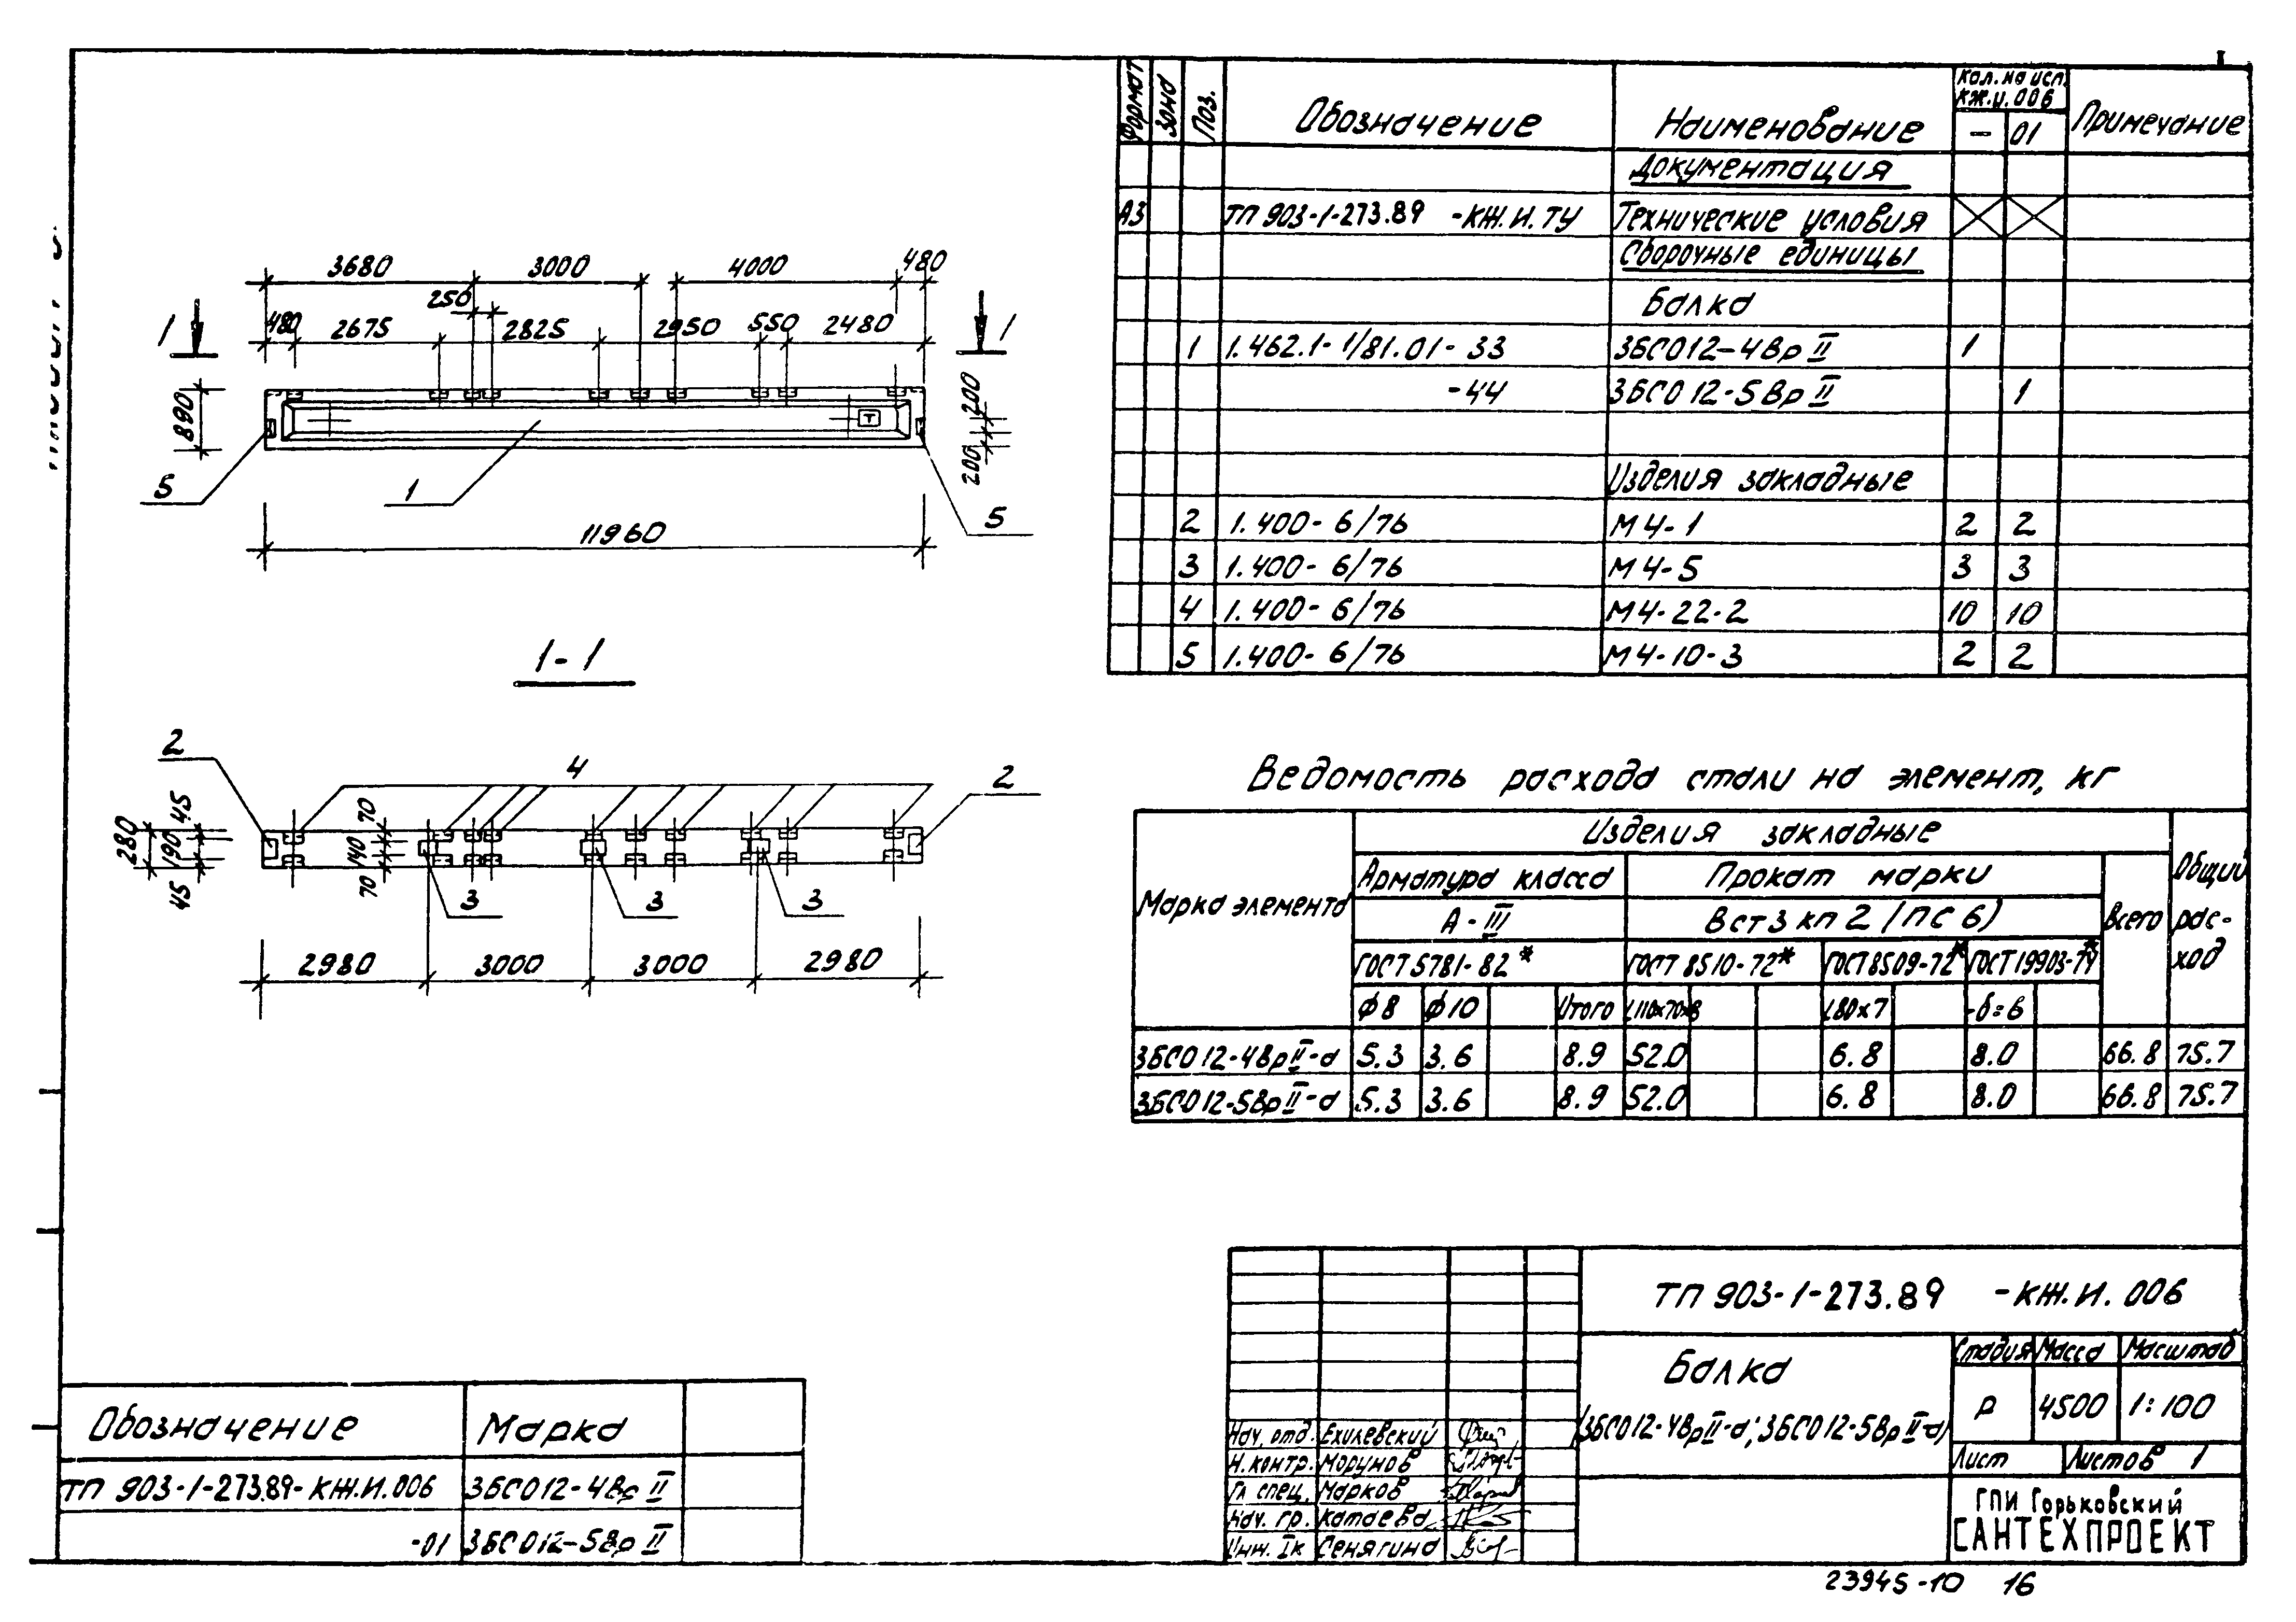 3680 3000 4000 480
250
480 2675 2825 2950 550 2480
1 1
890
200
200
Т
5 1 5
11960
1-1
2 4 2
280 45 190 45
70 140 70
3 3 3
2980 3000 3000 2980
Формат Зона Поз. Обозначение Наименование Кол. на исп. КЖ.И.006 Примечание
- 01
Документация
А3 ТП 903-1-273.89 -КЖ.И.ТУ Технические условия
Сборочные единицы
Балка
1 1.462.1-1/81.01-33 3БСО12-4ВрII 1
-44 3БСО12-5ВрII 1
Изделия закладные
2 1.400-6/76 М4-1 2 2
3 1.400-6/76 М4-5 3 3
4 1.400-6/76 М4-22-2 10 10
5 1.400-6/76 М4-10-3 2 2
Ведомость расхода стали на элемент, кг
Марка элемента Изделия закладные Общий расход
Арматура класса Прокат марки Всего
А-III Вст3кп2 (ПС6)
ГОСТ 5781-82* ГОСТ 8510-72* ГОСТ 8509-72* ГОСТ 19903-74*
φ8 φ10 Итого L110х70х8 L80х7 -δ=6
3БСО12-4ВрII-а 5.3 3.6 8.9 52.0 6.8 8.0 66.8 75.7
3БСО12-5ВрII-а 5.3 3.6 8.9 52.0 6.8 8.0 66.8 75.7
Обозначение Марка
ТП 903-1-273.89-КЖ.И.006 3БСО12-4ВрII
-01 3БСО12-5ВрII
ТП 903-1-273.89 -КЖ.И.006
Балка
(3БСО12-4ВрII-а; 3БСО12-5ВрII-а)
Стадия Масса Масштаб
Р 4500 1:100
Лист Листов 1
Нач. отд. Ехилевский
Н.контр. Морунов
Гл спец. Марков
Нач. гр. Катаева
Инж. Iк Сенягина
ГПИ Горьковский
САНТЕХПРОЕКТ
23945-10 16